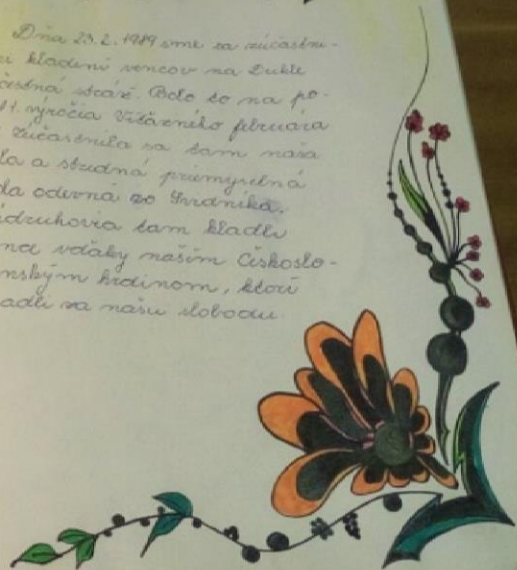 Dňa 23.2.1989 sme sa zúčastni-
kladení vencov na Dukle
čestná stráž. Bolo to na po-
výročia Víťazného februára
Zúčastnila sa tam naša
la a stredná priemyselná
da odevná zo Svidníka.
kladli tam
na vďaky našim Českoslo-
nským hrdinom, ktorí
adli za našu slobodu.